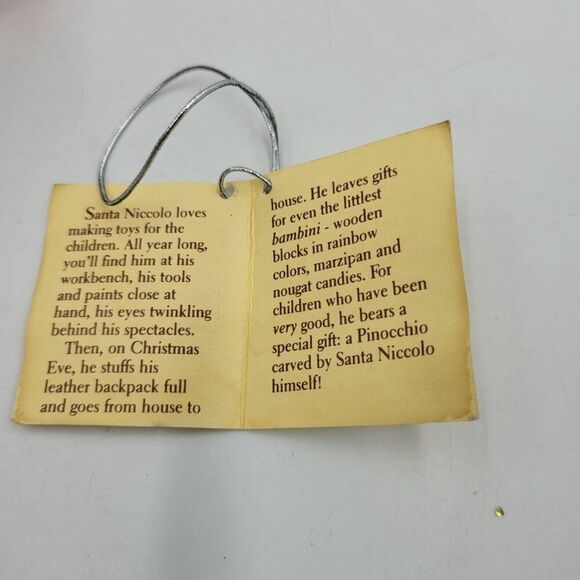 Santa Niccolo loves
making toys for the
children. All year long,
you'll find him at his
workbench, his tools
and paints close at
hand, his eyes twinkling
behind his spectacles.
Then, on Christmas
Eve, he stuffs his
leather backpack full
and goes from house to
house. He leaves gifts
for even the littlest
bambini - wooden
blocks in rainbow
colors, marzipan and
nougat candies. For
children who have been
very good, he bears a
special gift: a Pinocchio
carved by Santa Niccolo
himself!